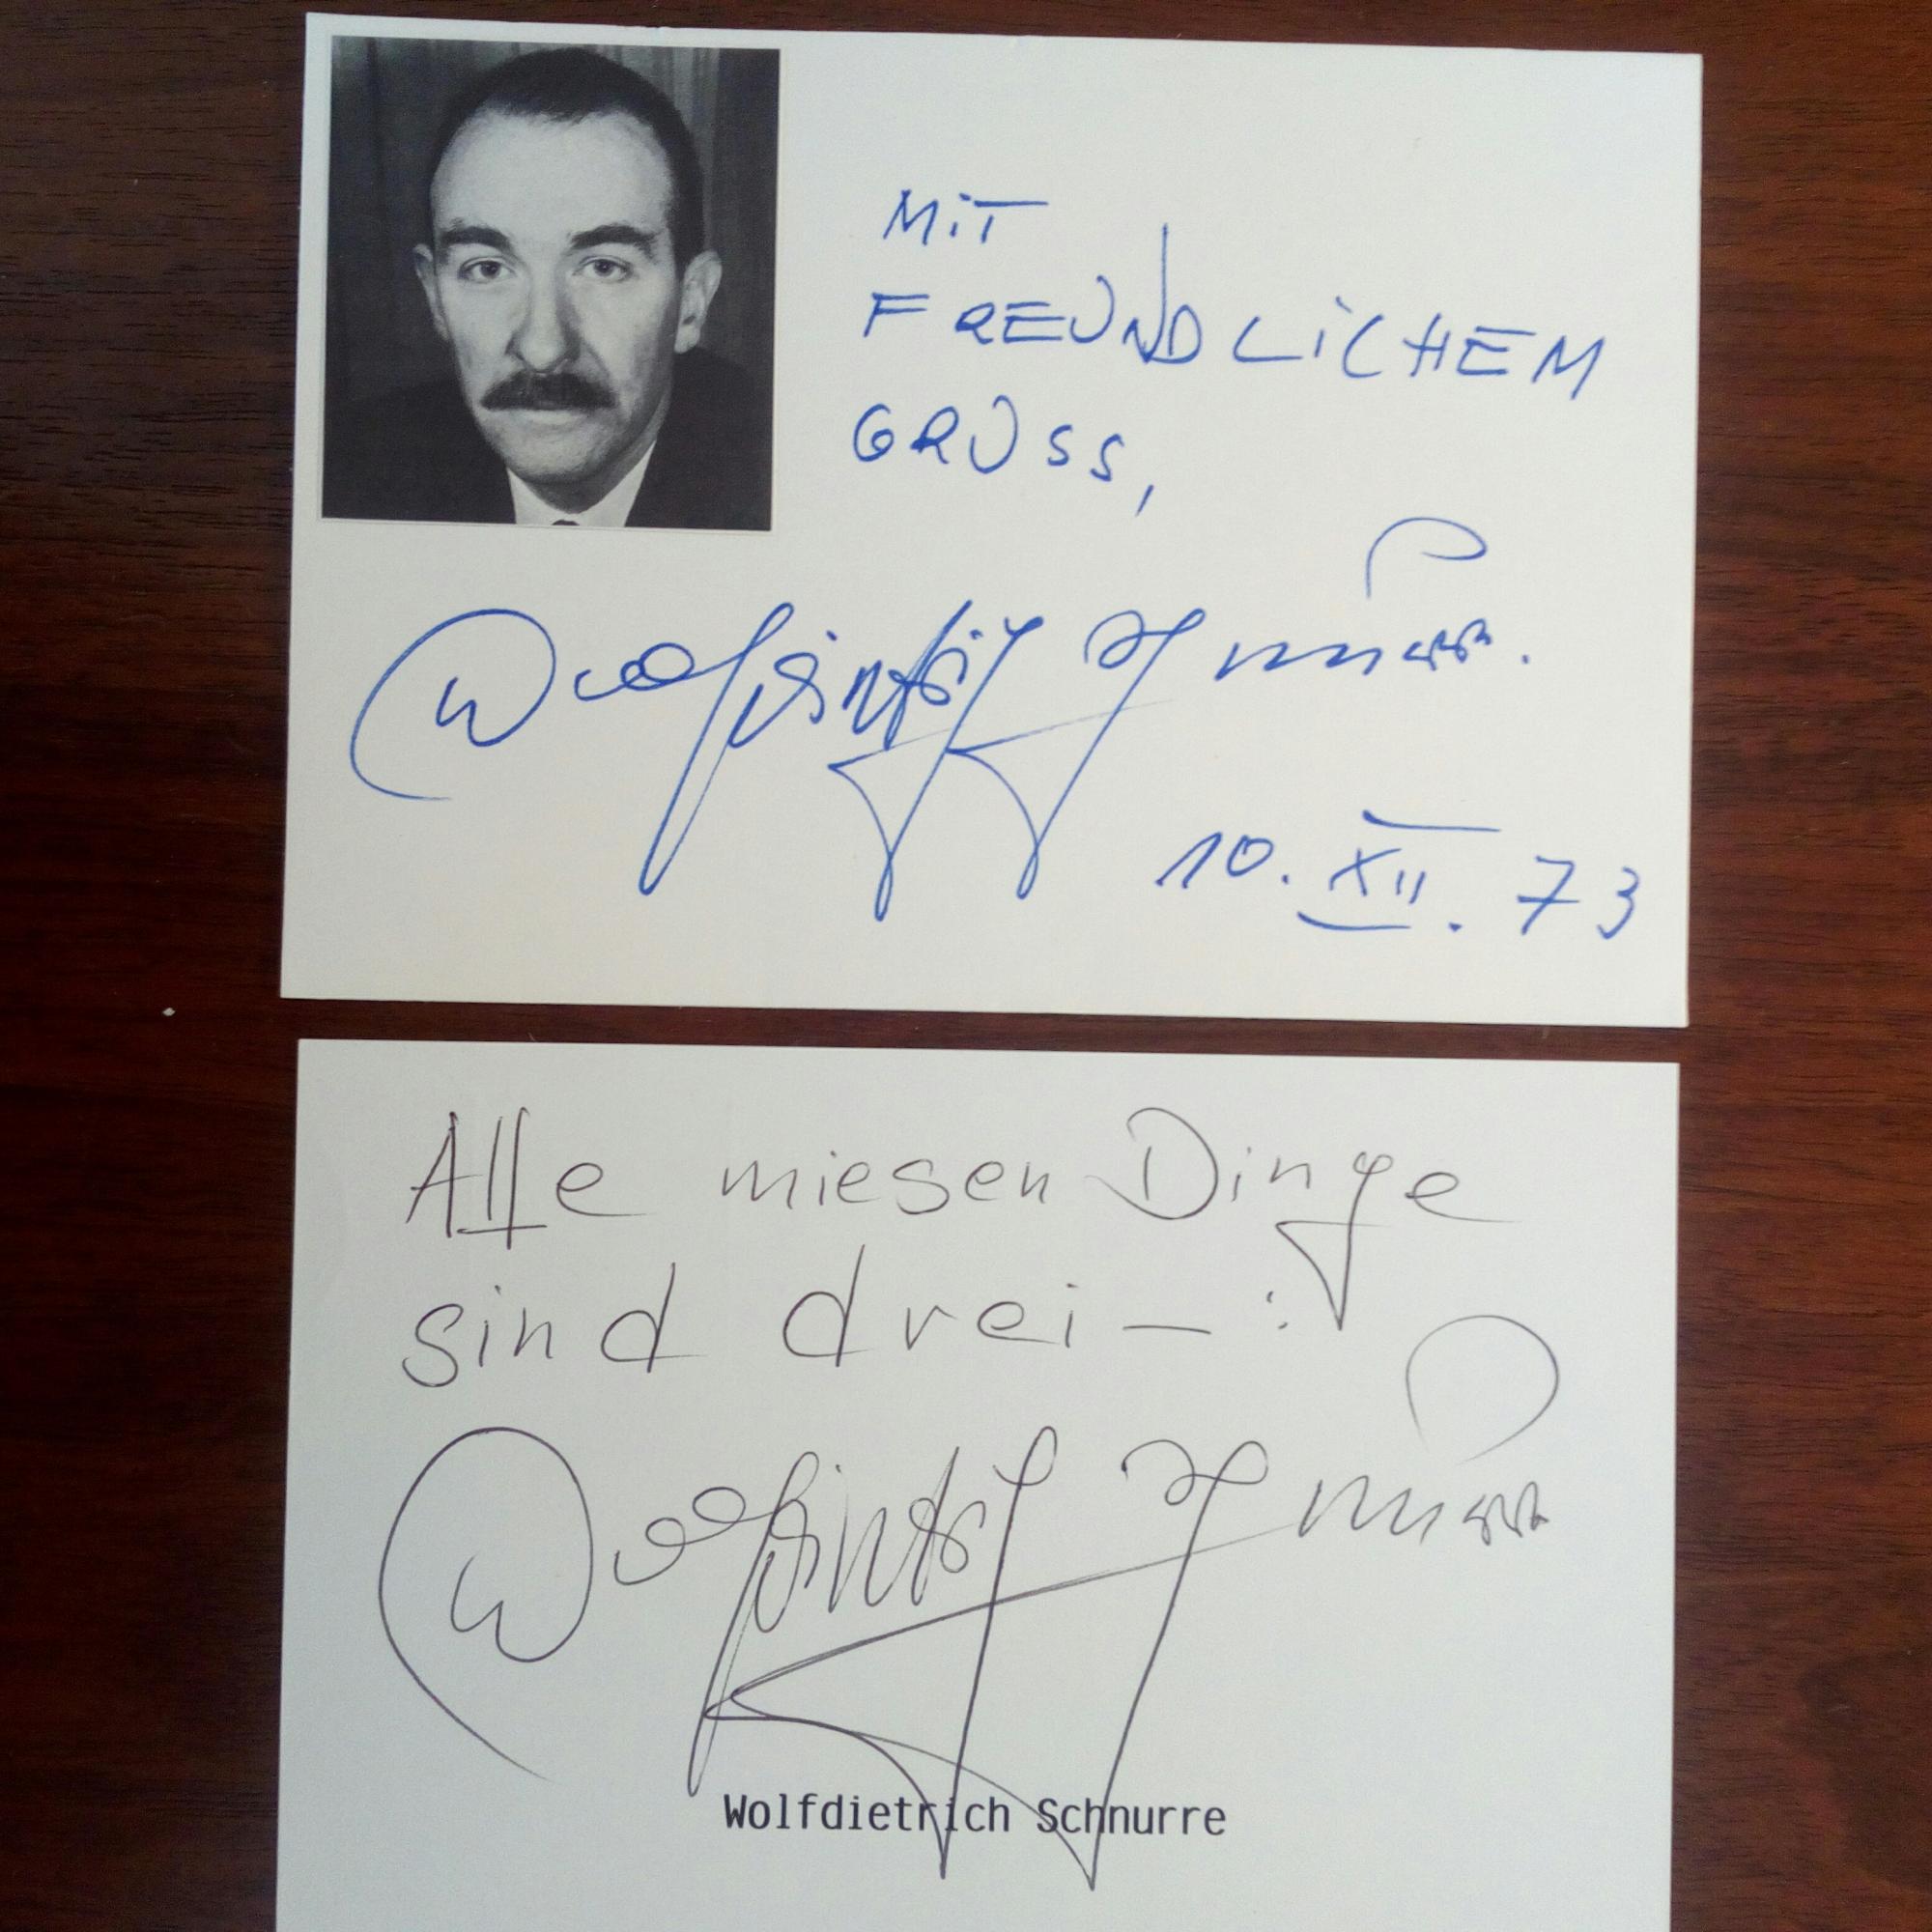 MiT
FREUNDLiCHEM
GRUSS,
Wolfdietrich Schnurre.
10. XII. 73
Alle miesen Dinge
sind drei — :
Wolfdietrich Schnurre
Wolfdietrich Schnurre